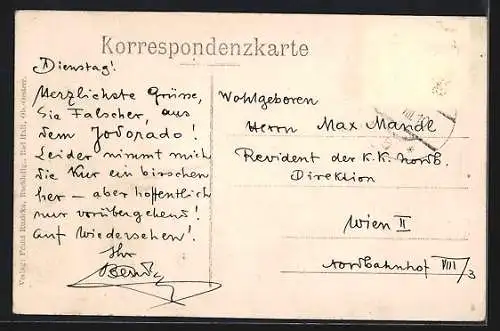 Korrespondenzkarte
Dienstag!
Herzlichste Grüsse,
Sie Falscher, aus
dem Jodorado!
Leider nimmt mich
die Kur ein bisschen
her – aber hoffentlich
nur vorübergehend!
Auf Wiedersehen!
Ihr
Wohlgeboren
Herrn Max Mandl
Revident der K.K. Nordb.
Direktion
Wien II
Nordbahnhof VIII/3
Verlag: Franz Buchhdlg., Bad Hall, Ob.-Oesterr.